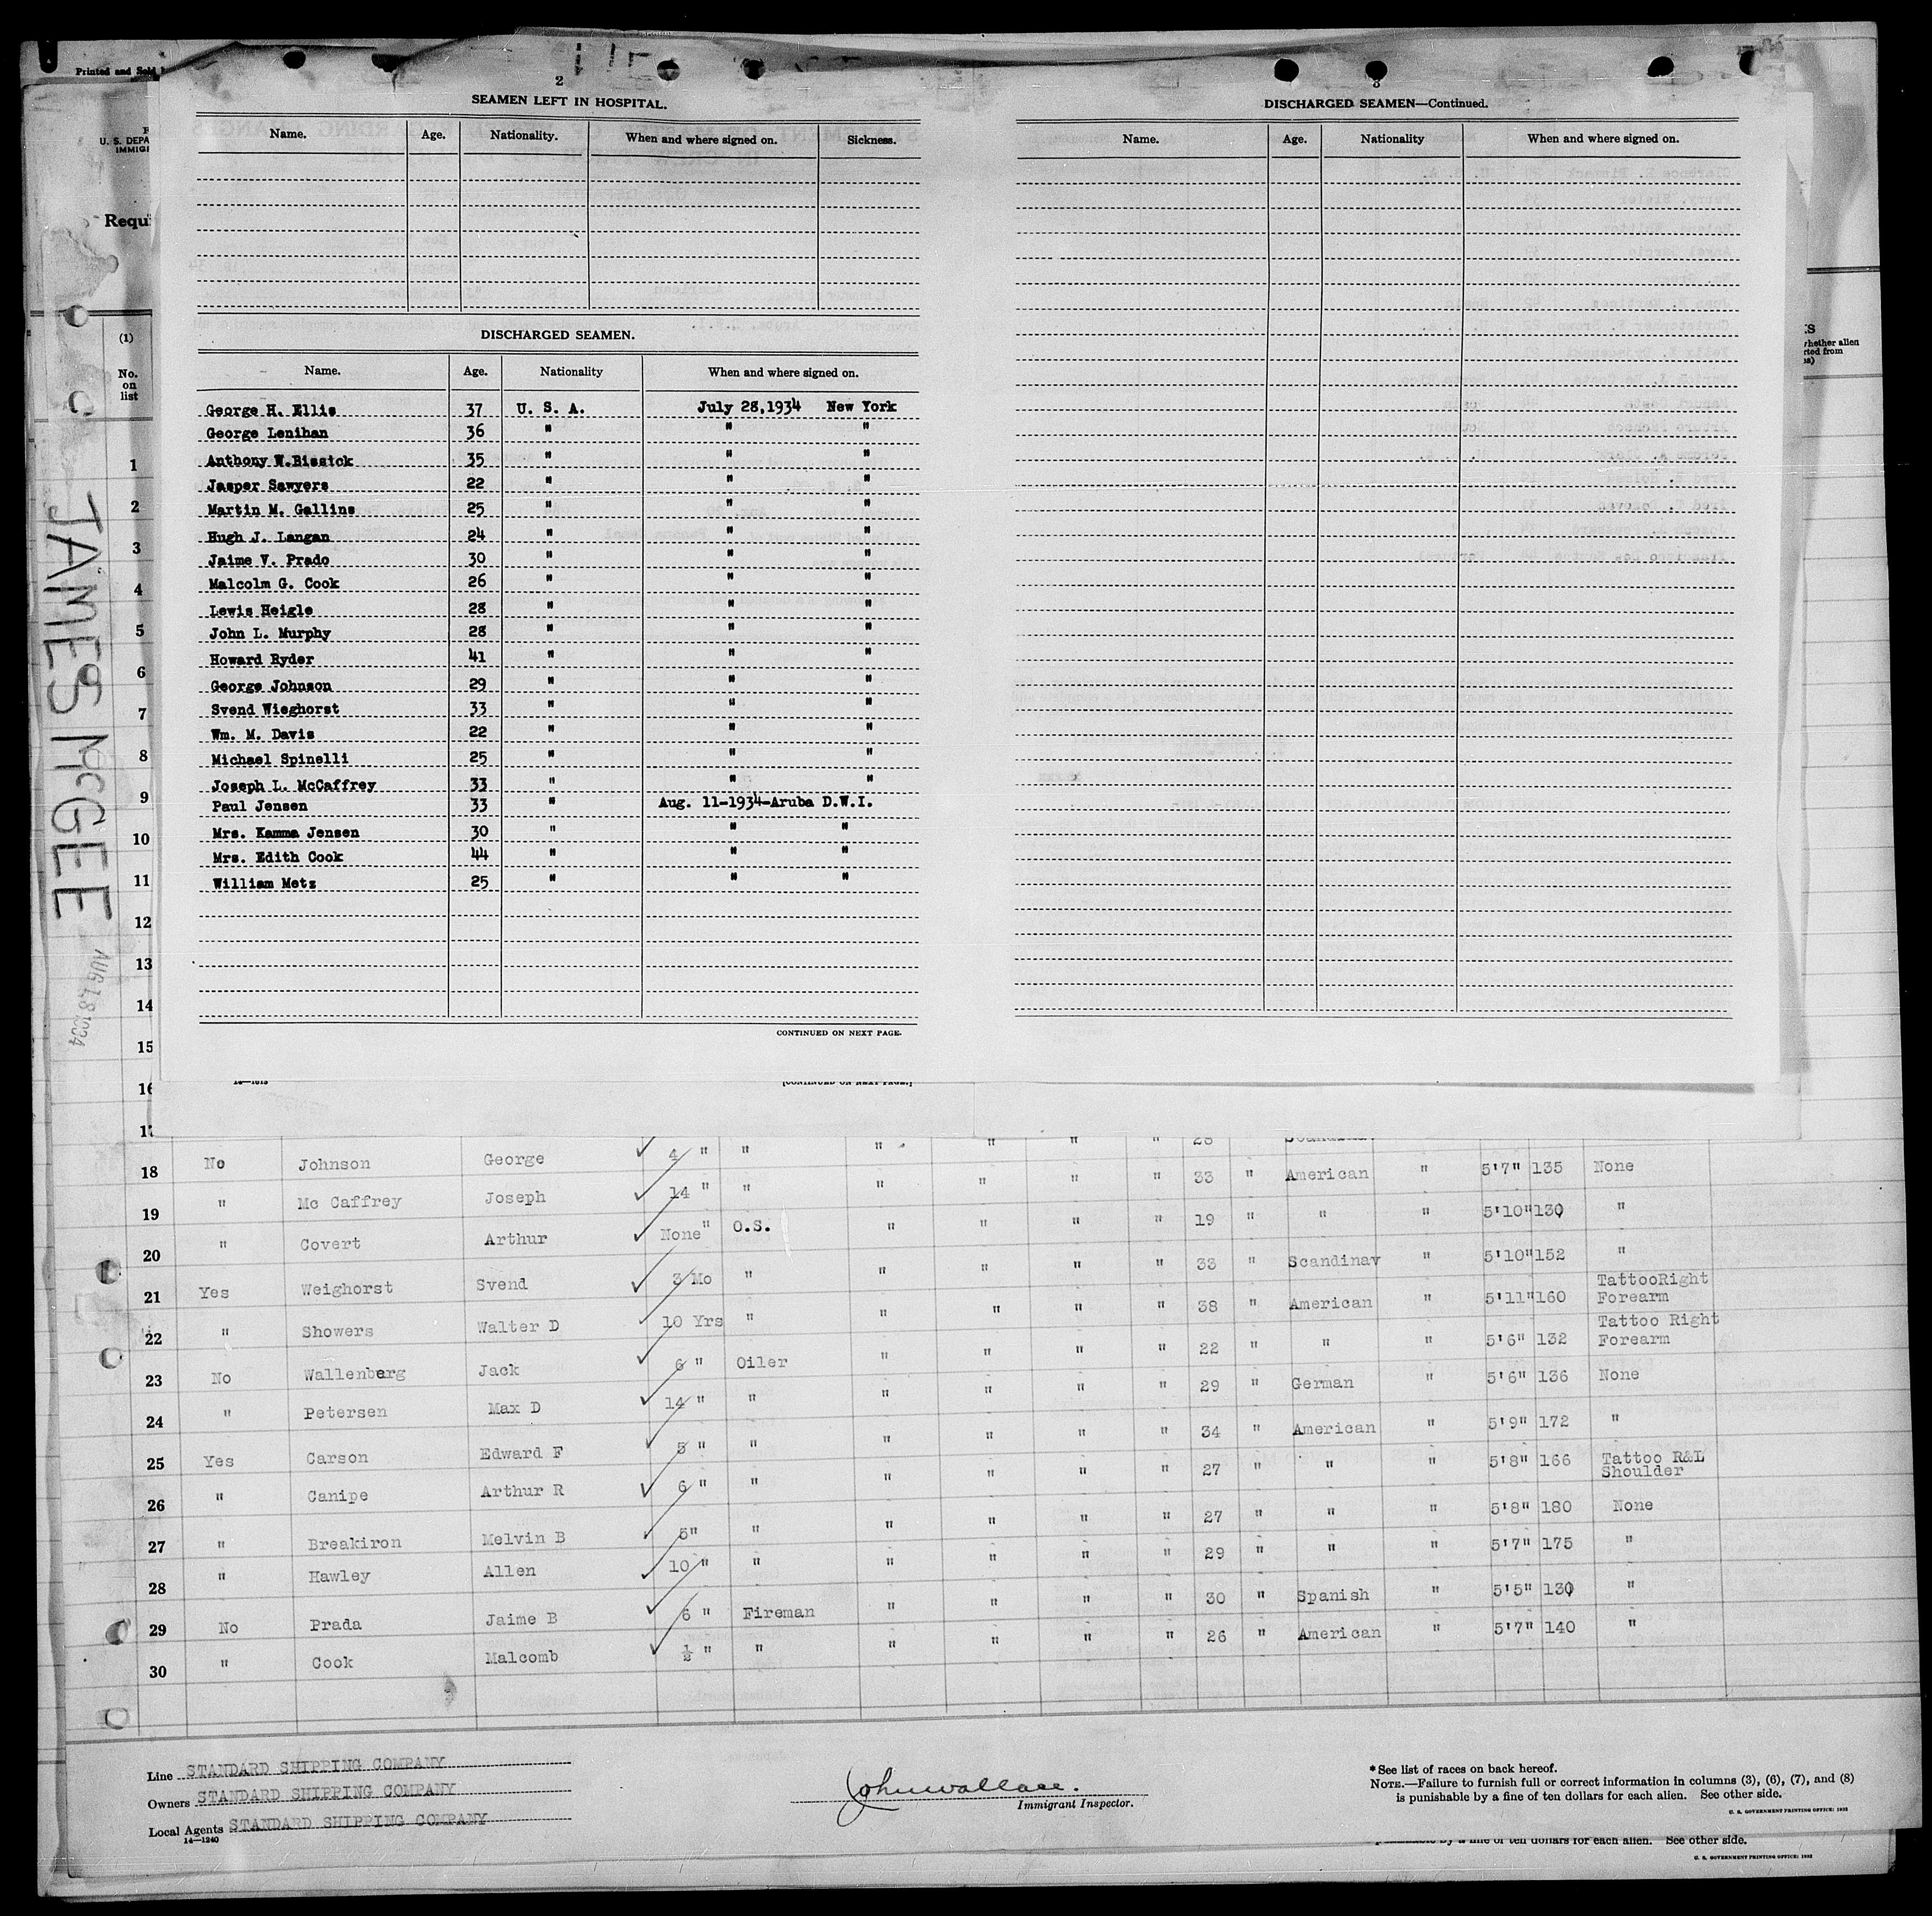 Printed and Sold
U. S. DEPA
IMMIGR
Requi
(1)
No.
on
list
JAMES MCGEE AUG 18 1934
2
SEAMEN LEFT IN HOSPITAL.
Name. Age. Nationality. When and where signed on. Sickness.
DISCHARGED SEAMEN.
Name. Age. Nationality When and where signed on.
George H. Ellis 37 U. S. A. July 28,1934 New York
George Lenihan 36 " " "
Anthony W.Bissick 35 " " "
Jasper Sawyers 22 " " "
Martin M. Gallins 25 " " "
Hugh J. Langan 24 " " "
Jaime V. Prado 30 " " "
Malcolm G. Cook 26 " " "
Lewis Heigle 28 " " "
John L. Murphy 28 " " "
Howard Ryder 41 " " "
George Johnson 29 " " "
Svend Wieghorst 33 " " "
Wm. M. Davis 22 " " "
Michael Spinelli 25 " " "
Joseph L. McCaffrey 33 " " "
Paul Jensen 33 " Aug. 11-1934-Aruba D.W.I.
Mrs. Kamma Jensen 30 " " "
Mrs. Edith Cook 44 " " "
William Metz 25 " " "
CONTINUED ON NEXT PAGE.
3
DISCHARGED SEAMEN—Continued.
Name. Age. Nationality When and where signed on.
KS
whether alien
rted from
1
2
3
4
5
6
7
8
9
10
11
12
13
14
15
16
17
[CONTINUED ON NEXT PAGE.]
18 No Johnson George 4 " " " " " " 28 "
19 " Mc Caffrey Joseph 14 " " " " " " 33 " American " 5'7" 135 None
20 " Covert Arthur None " O.S. " " " " 19 " " " 5'10" 130 "
21 Yes Weighorst Svend 3 Mo " " " " " 33 " Scandinav " 5'10" 152 "
22 " Showers Walter D 10 Yrs " " " " " 38 " American " 5'11" 160 TattooRight Forearm
23 No Wallenberg Jack 6 " Oiler " " " " 22 " " " 5'6" 132 Tattoo Right Forearm
24 " Petersen Max D 14 " " " " " " 29 " German " 5'6" 136 None
25 Yes Carson Edward F 5 " " " " " " 34 " American " 5'9" 172 "
26 " Canipe Arthur R 6 " " " " " " 27 " " " 5'8" 166 Tattoo R&L Shoulder
27 " Breakiron Melvin B 5" " " " " " 27 " " " 5'8" 180 None
28 " Hawley Allen 10 " " " " " " 29 " " " 5'7" 175 "
29 No Prada Jaime B 6 " Fireman " " " " 30 " Spanish " 5'5" 130 "
30 " Cook Malcomb ½ " " " " " " 26 " American " 5'7" 140 "
Line STANDARD SHIPPING COMPANY
Owners STANDARD SHIPPING COMPANY
Local Agents STANDARD SHIPPING COMPANY
14—1240
John Wallace.
Immigrant Inspector.
*See list of races on back hereof.
NOTE.—Failure to furnish full or correct information in columns (3), (6), (7), and (8)
is punishable by a fine of ten dollars for each alien. See other side.
U. S. GOVERNMENT PRINTING OFFICE: 1932
punishable by a fine of ten dollars for each alien. See other side.
U. S. GOVERNMENT PRINTING OFFICE: 1932